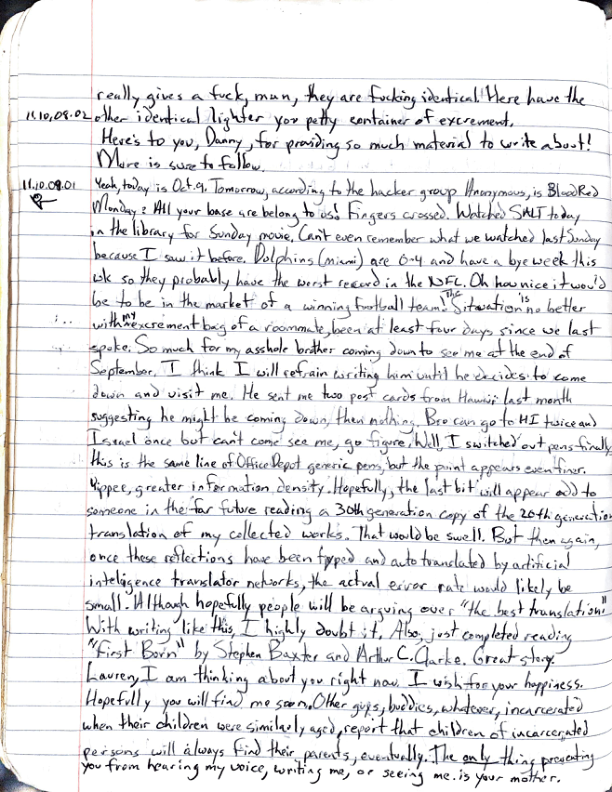 really gives a fuck, man, they are fucking identical! Here have the
11.10.09.02 other identical lighter you petty container of excrement.
Here's to you, Danny, for providing so much material to write about!
More is sure to follow.
11.10.09.01 Yeah, today is Oct. 9. Tomorrow, according to the hacker group Anonymous, is Blood Red
Monday? All your base are belong to us! Fingers crossed. Watched SALT today
in the library for Sunday movie. Can't even remember what we watched last Sunday
because I saw it before. Dolphins (Miami) are 0-4 and have a bye week this
wk so they probably have the worst record in the NFL. Oh how nice it would
be to be in the market of a winning football team! The Situation is no better
with my excrement bag of a roommate, been at least four days since we last
spoke. So much for my asshole brother coming down to see me at the end of
September. I think I will refrain writing him until he decides to come
down and visit me. He sent me two post cards from Hawaii last month
suggesting he might be coming down, then nothing. Bro can go to HI twice and
Israel once but can't come see me, go figure. Well, I switched out pens finally,
this is the same line of Office Depot generic pens, but the point appears even finer.
Yippee, greater information density. Hopefully, the last bit will appear odd to
someone in the far future reading a 30th generation copy of the 20th generation
translation of my collected works. That would be swell. But then again,
once these reflections have been typed and auto translated by artificial
intelligence translator networks, the actual error rate would likely be
small. Although hopefully people will be arguing over "the best translation."
With writing like this, I highly doubt it. Also, just completed reading
"First Born" by Stephen Baxter and Arthur C. Clarke. Great story.
Lauren, I am thinking about you right now. I wish for your happiness.
Hopefully you will find me soon. Other guys, buddies, whatever, incarcerated
when their children were similarly aged, report that children of incarcerated
persons will always find their parents, eventually. The only thing preventing
you from hearing my voice, writing me, or seeing me is your mother.